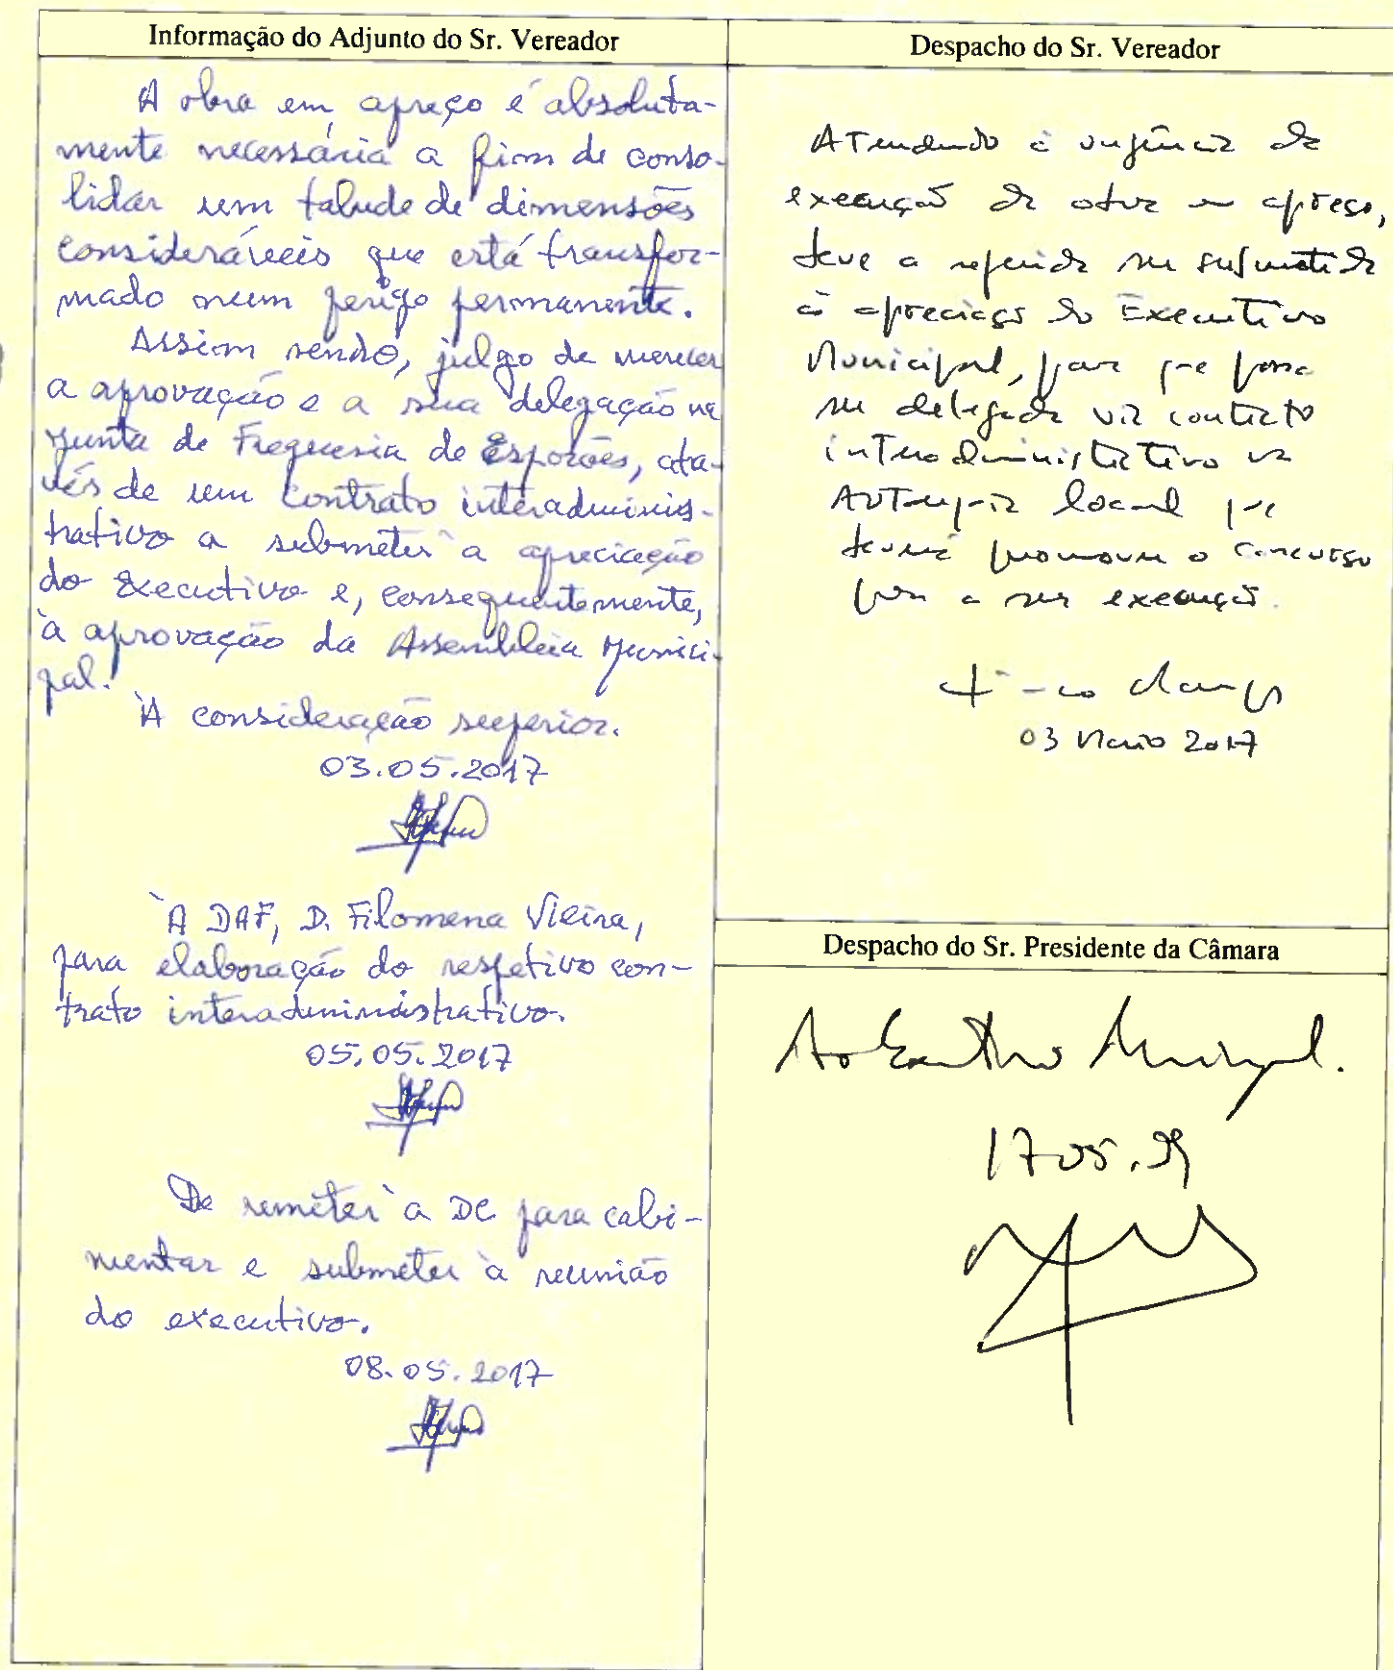 Informação do Adjunto do Sr. Vereador
A obra em apreço é absoluta-
mente necessária a fim de conso-
lidar um talude de dimensões
consideráveis que está transfor-
mado num perigo permanente.
Assim sendo, julgo de merecer
a aprovação e a sua delegação na
Junta de Freguesia de Esporões, atra-
vés de um contrato interadminis-
trativo a submeter à apreciação
do Executivo e, consequentemente,
à aprovação da Assembleia Munici-
pal.
À consideração superior.
03.05.2017
À DAF, D. Filomena Vieira,
para elaboração do respetivo con-
trato interadministrativo.
05.05.2017
De remeter à DC para cabi-
mentar e submeter à reunião
do executivo.
08.05.2017
Despacho do Sr. Vereador
Atendendo à urgência da
execução da obra em apreço,
deve a referida ser submetida
à apreciação do Executivo
Municipal, para que possa
ser delegada via contrato
interadministrativo na
Autarquia local que
deverá promover o concurso
para a sua execução.
03 Maio 2017
Despacho do Sr. Presidente da Câmara
Ao Executivo Municipal.